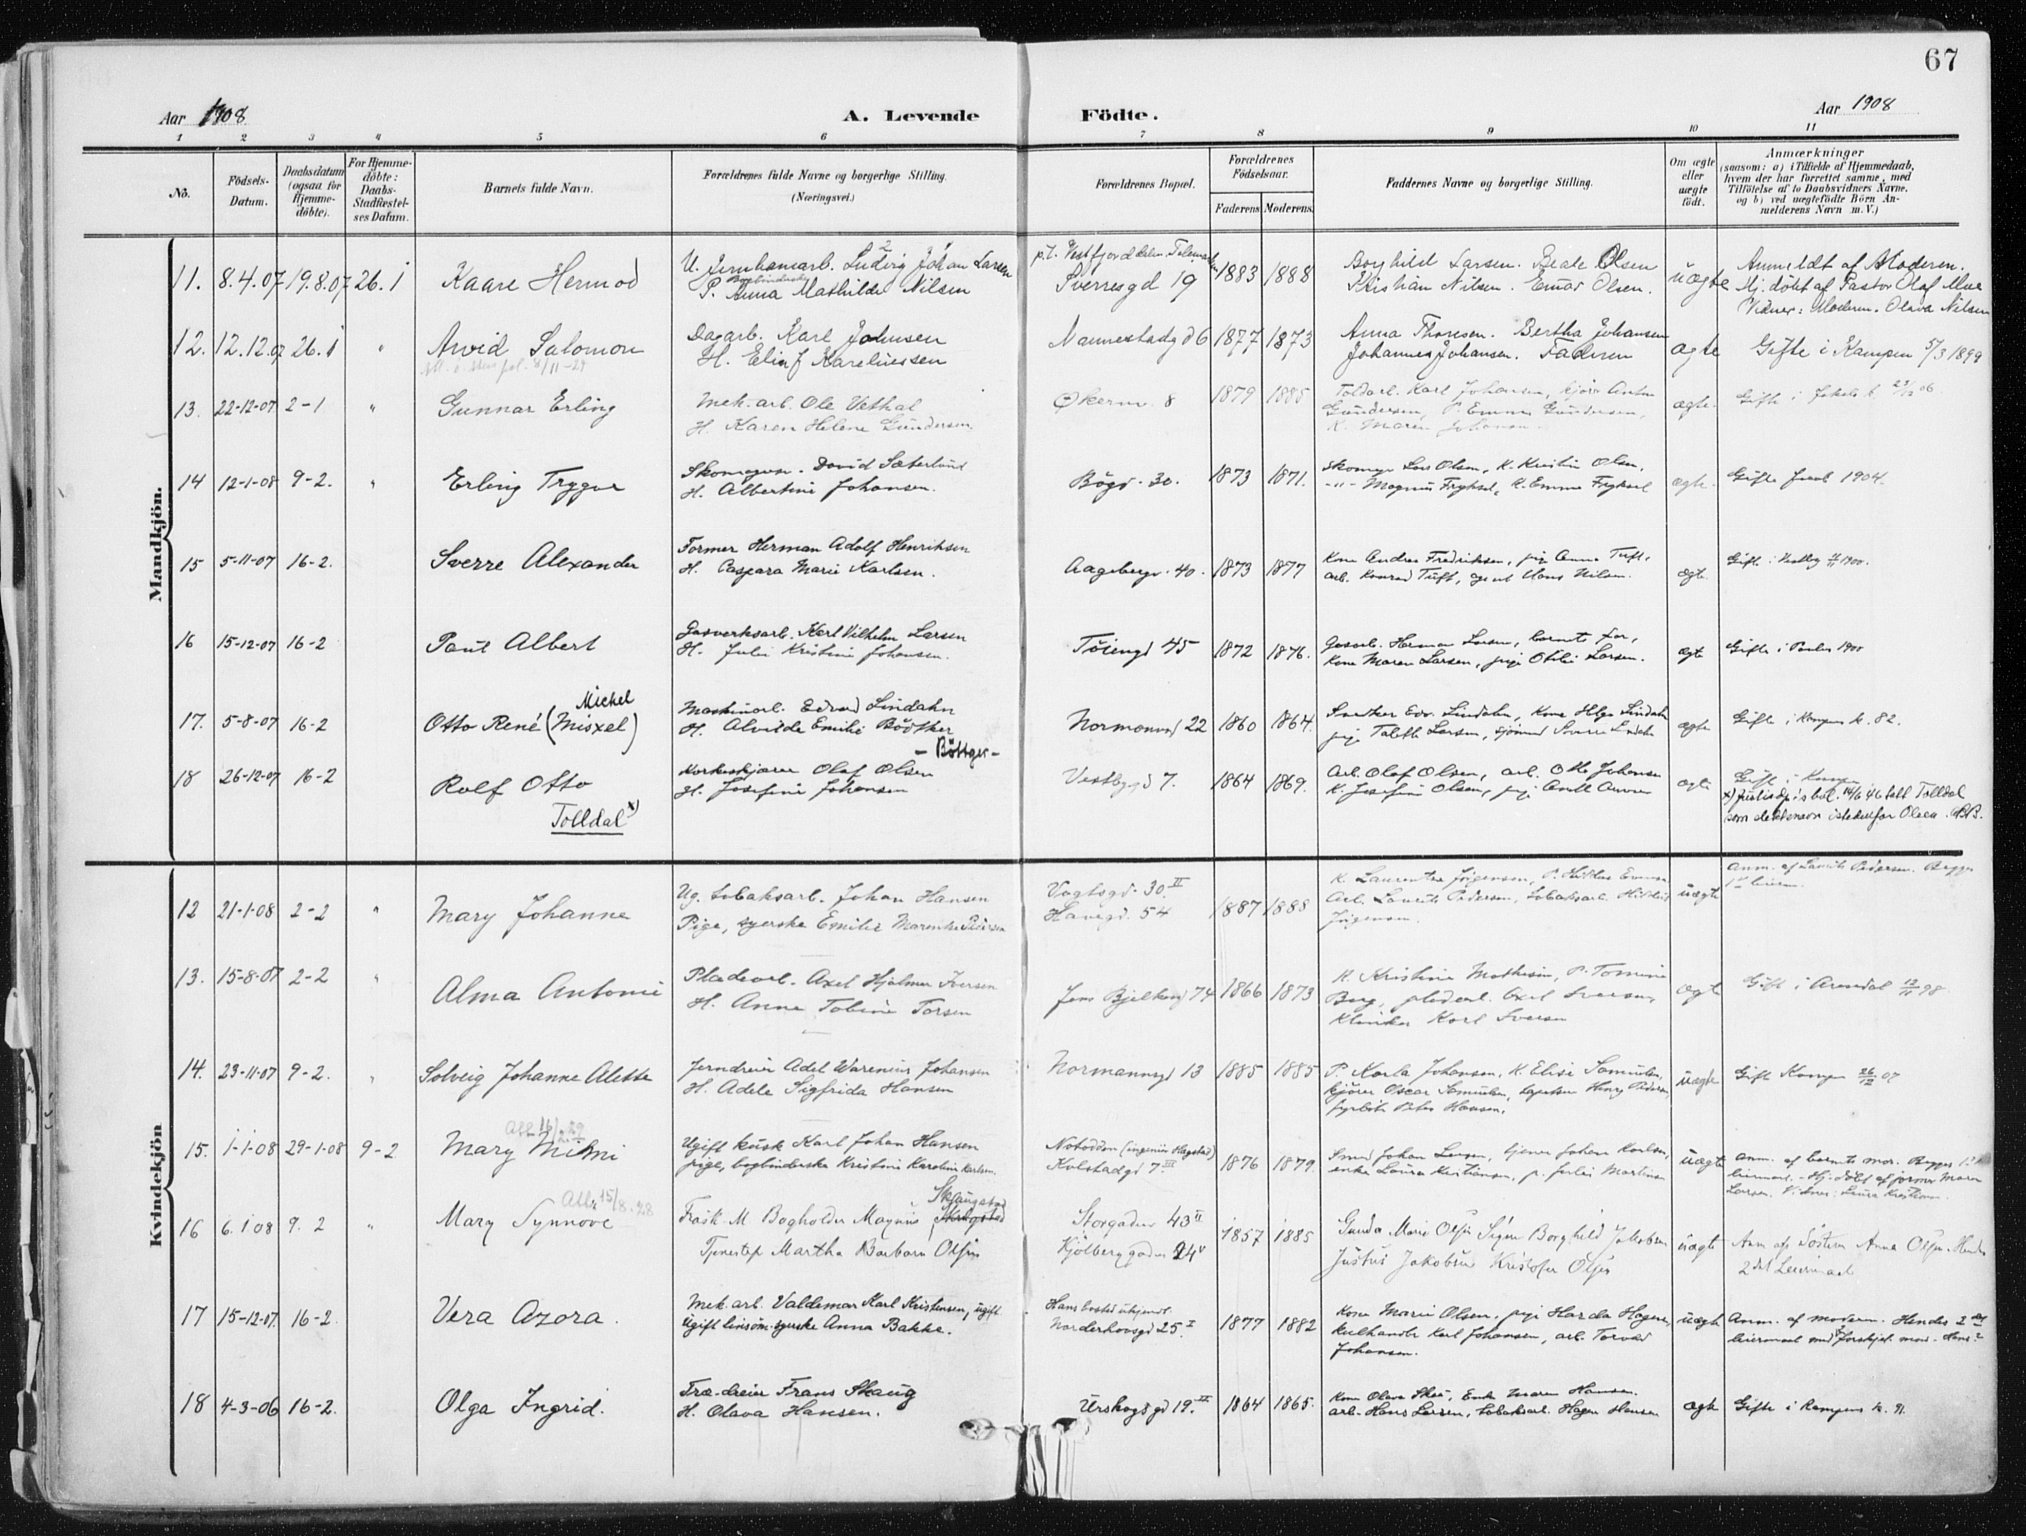 67
Aar 1908 A. Levende Födte. Aar 1908
1 2 3 4 5 6 7 8 9 10 11
No.
Födsels-Datum.
Daabsdatum (ogsaa for Hjemmedöbte).
For Hjemmedöbte: Daabs-Stadfæstelses Datum.
Barnets fulde Navn.
Forældrenes fulde Navne og borgerlige Stilling.
(Næringsvei.)
Forældrenes Bopæl.
Forældrenes Födselsaar.
Faderens. Moderens.
Faddernes Navne og borgerlige Stilling.
Om ægte eller uægte födt.
Anmærkninger
(saasom: a) i Tilfælde af Hjemmedaab, hvem der har forrettet samme, med Tilföielse af to Daabsvidners Navne, og b) ved uægtefödte Börn Anmelderens Navn m. V.)
Mandkjön.
11. 8.4.07 19.8.07 26.1 Kaare Hermod
U. Jernbanearb. Ludvig Johan Larsen
P. Anna Mathilde Nilsen
p.t. Vestfjorddalen Telemarken
Sverresgd 19 1883 1888
Borghild Larsen. Beate Olsen
Kristian Nilsen. Einar Olsen. uægte
Anmeldt af Moderen.
Hj. döbt af Pastor Olaf Moe
Vidner: Moderen. Olava Nilsen
12. 12.12.07 26.1 " Arvid Salomon
Dagarb. Karl Johnsen
H. Elise Kareliussen
Nannestadgd 6 1877 1873
Anna Thoresen. Bertha Johansen
Johannes Johansen. Faderen ægte
Gifte i Kampen 5/3 1899
13. 22-12-07 2-1 " Gunnar Erling
Mek. arb. Ole Vethal
H. Karen Helene Gundersen
Økernv 8 1879 1885
Toldarb. Karl Johansen, kjörer Anton
Gundersen, P. Emma Gundersen,
K. Maren Johansen ægte.
Gifte i Jakobs k. 23/12 06
14 12-1-08 9-2. " Erling Trygve
Skomager David Sæterlund
H. Albertine Johansen.
Bögd. 30. 1873 1871.
Skomgr Lars Olsen, K. Kristin Olsen,
-"- Magnus Fryksel, K. Emma Fryksel ægte.
Gifte 1904.
15 5-11-07 16-2. Sverre Alexander
Former Herman Adolf Henriksen
H. Caspara Marie Karlsen.
Aagebergv. 40. 1873 1877
Kone Andrea Fredriksen, pige Anna Tuft,
arb. Konrad Tuft, agent Hans Nilsen. ægte.
Gifte i Vestby 1900.
16 15-12-07 16-2 Paul Albert
Gasverksarb. Karl Vilhelm Larsen
H. Julie Kristine Johansen.
Töiengd 45 1872 1876.
Gasarb. Herman Larsen, barnets far,
Kone Maren Larsen, pige Otilie Larsen. ægte
Gifte i Paulus 1900
17. 5-8-07 16-2 Otto René (Misxel) Mickel
Maskinarb. Edvard Lindahn
H. Alvilde Emilie Bödtker
- Böttger -
Normannsgd 22 1860 1864.
Snedker Edv. Lindahn, Kone Helga Lindahn
pige Larsen, sjömand Sverre Lindahn ægte
Gifte i Kampens k. 82.
18 26-12-07 16-2 Rolf Otto
Tolldal x)
Korkeskjærer Olaf Olsen
H. Josefine Johansen
Vestbygd 7. 1864 1869.
Arb. Olaf Olsen, arb. Otto Johansen
K. Josefine Olsen, pige ægte
Gift i Kampen
x) Justisdp's bev. 14/6 46 tatt Tolldal
som slektsnavn istedenfor Olsen.
Kvindekjön
12 21-1-08 2-2 " Mary Johanne
Ug. tobaksarb. Johan Hansen
Pige, syerske Emilie Marentze Pedersen
Vogtsgd. 30 II
Havegd. 54 1887 1888
K. Laurentse Jörgensen, P. Hildur
Arb. Laurits Pedersen, tobaksarb.
Jörgensen. uægte
Anm. af Laurits Pedersen. Begges
1ste leierm.
13. 15-8-07 2-2 " Alma Antonie
Pladearb. Axel Hjalmar Iversen
H. Anna Tobine Torsen
Jens Bjelkesgd 74 1866 1873
K. Kristine Mathisen, P. Tomine
Berg, pladearb. Axel Iversen,
Klinker Karl Iversen ægte
Gift i Arendal 12/11 98
14. 23-11-07 9-2. " Solveig Johanne Alette
Jerndreier Adel Warenius Johansen
H. Adele Sigfrida Hansen
Normannsgd 13 1885 1885
P. Karla Johansen, K. Elise Samuelsen,
kjörer Oscar Samuelsen, Henry Pedersen,
fyrböt. Peter Hansen. uægte
Gift Kampen 26/12 07
15. 1-1-08 29-1-08 9-2 Mary Mimi
Ugift kusk Karl Johan Hansen
pige, bogbinderske Kristine Karoline Karlsen
Notodden (ingeniör Hagstad)
Kolstadgd 7 III 1876 1879.
Smed Johan Larsen, tjener Johan Karlsen,
enke Laura Kristiansen, p. Julie Martinsen uægte
Anm. af barnets mor. Begges 1ste
leiermaal. - Hj. döbt af jormor Maren
Larsen. Vidner: Laura Kristiansen.
16 6.1.08 9.2 " Mary Synnöve
Attst 15/8.28
Frask. M. Bogholder Magnus Skaugstad
Tjenestep Martha Barbara Olsen
Storgaden 43 II
Kjölberggaden 24 V 1857 1885
Gunda Marie Olsen Signe Borghild Jakobsen
Justus Jakobsen Kristofer Olsen uægte
Anm af Söstern Anna Olsen. Hendes
2det Leiermaal
17 15-12-07. 16-2. Vera Azora.
Mek. arb. Valdemar Karl Kristensen, ugift
Ugift linsöm-syerske Anna Bakke.
Hans bosted ukjendt.
Norderhovsgd 25 I. 1877 1882
Kone Marie Olsen, pige Harda Hagen,
Kulhandler Karl Johansen, arb. Torvald
Johansen. uægte
Anm. af moderen. Hendes 2det
leiermaal med 2 forskjel. mænd. Hans ?
18 4-3-06 16-2. Olga Ingrid.
Træ-dreier Frans Skaug
H. Olava Hansen.
Urskogsgd 19. II 1864 1865.
Kone Olava Skau, Enke Maren Hansen.
arb. Hans Larsen, tobaksarb. Hagen Hansen ægte
Gifte i Kampens k. 91.